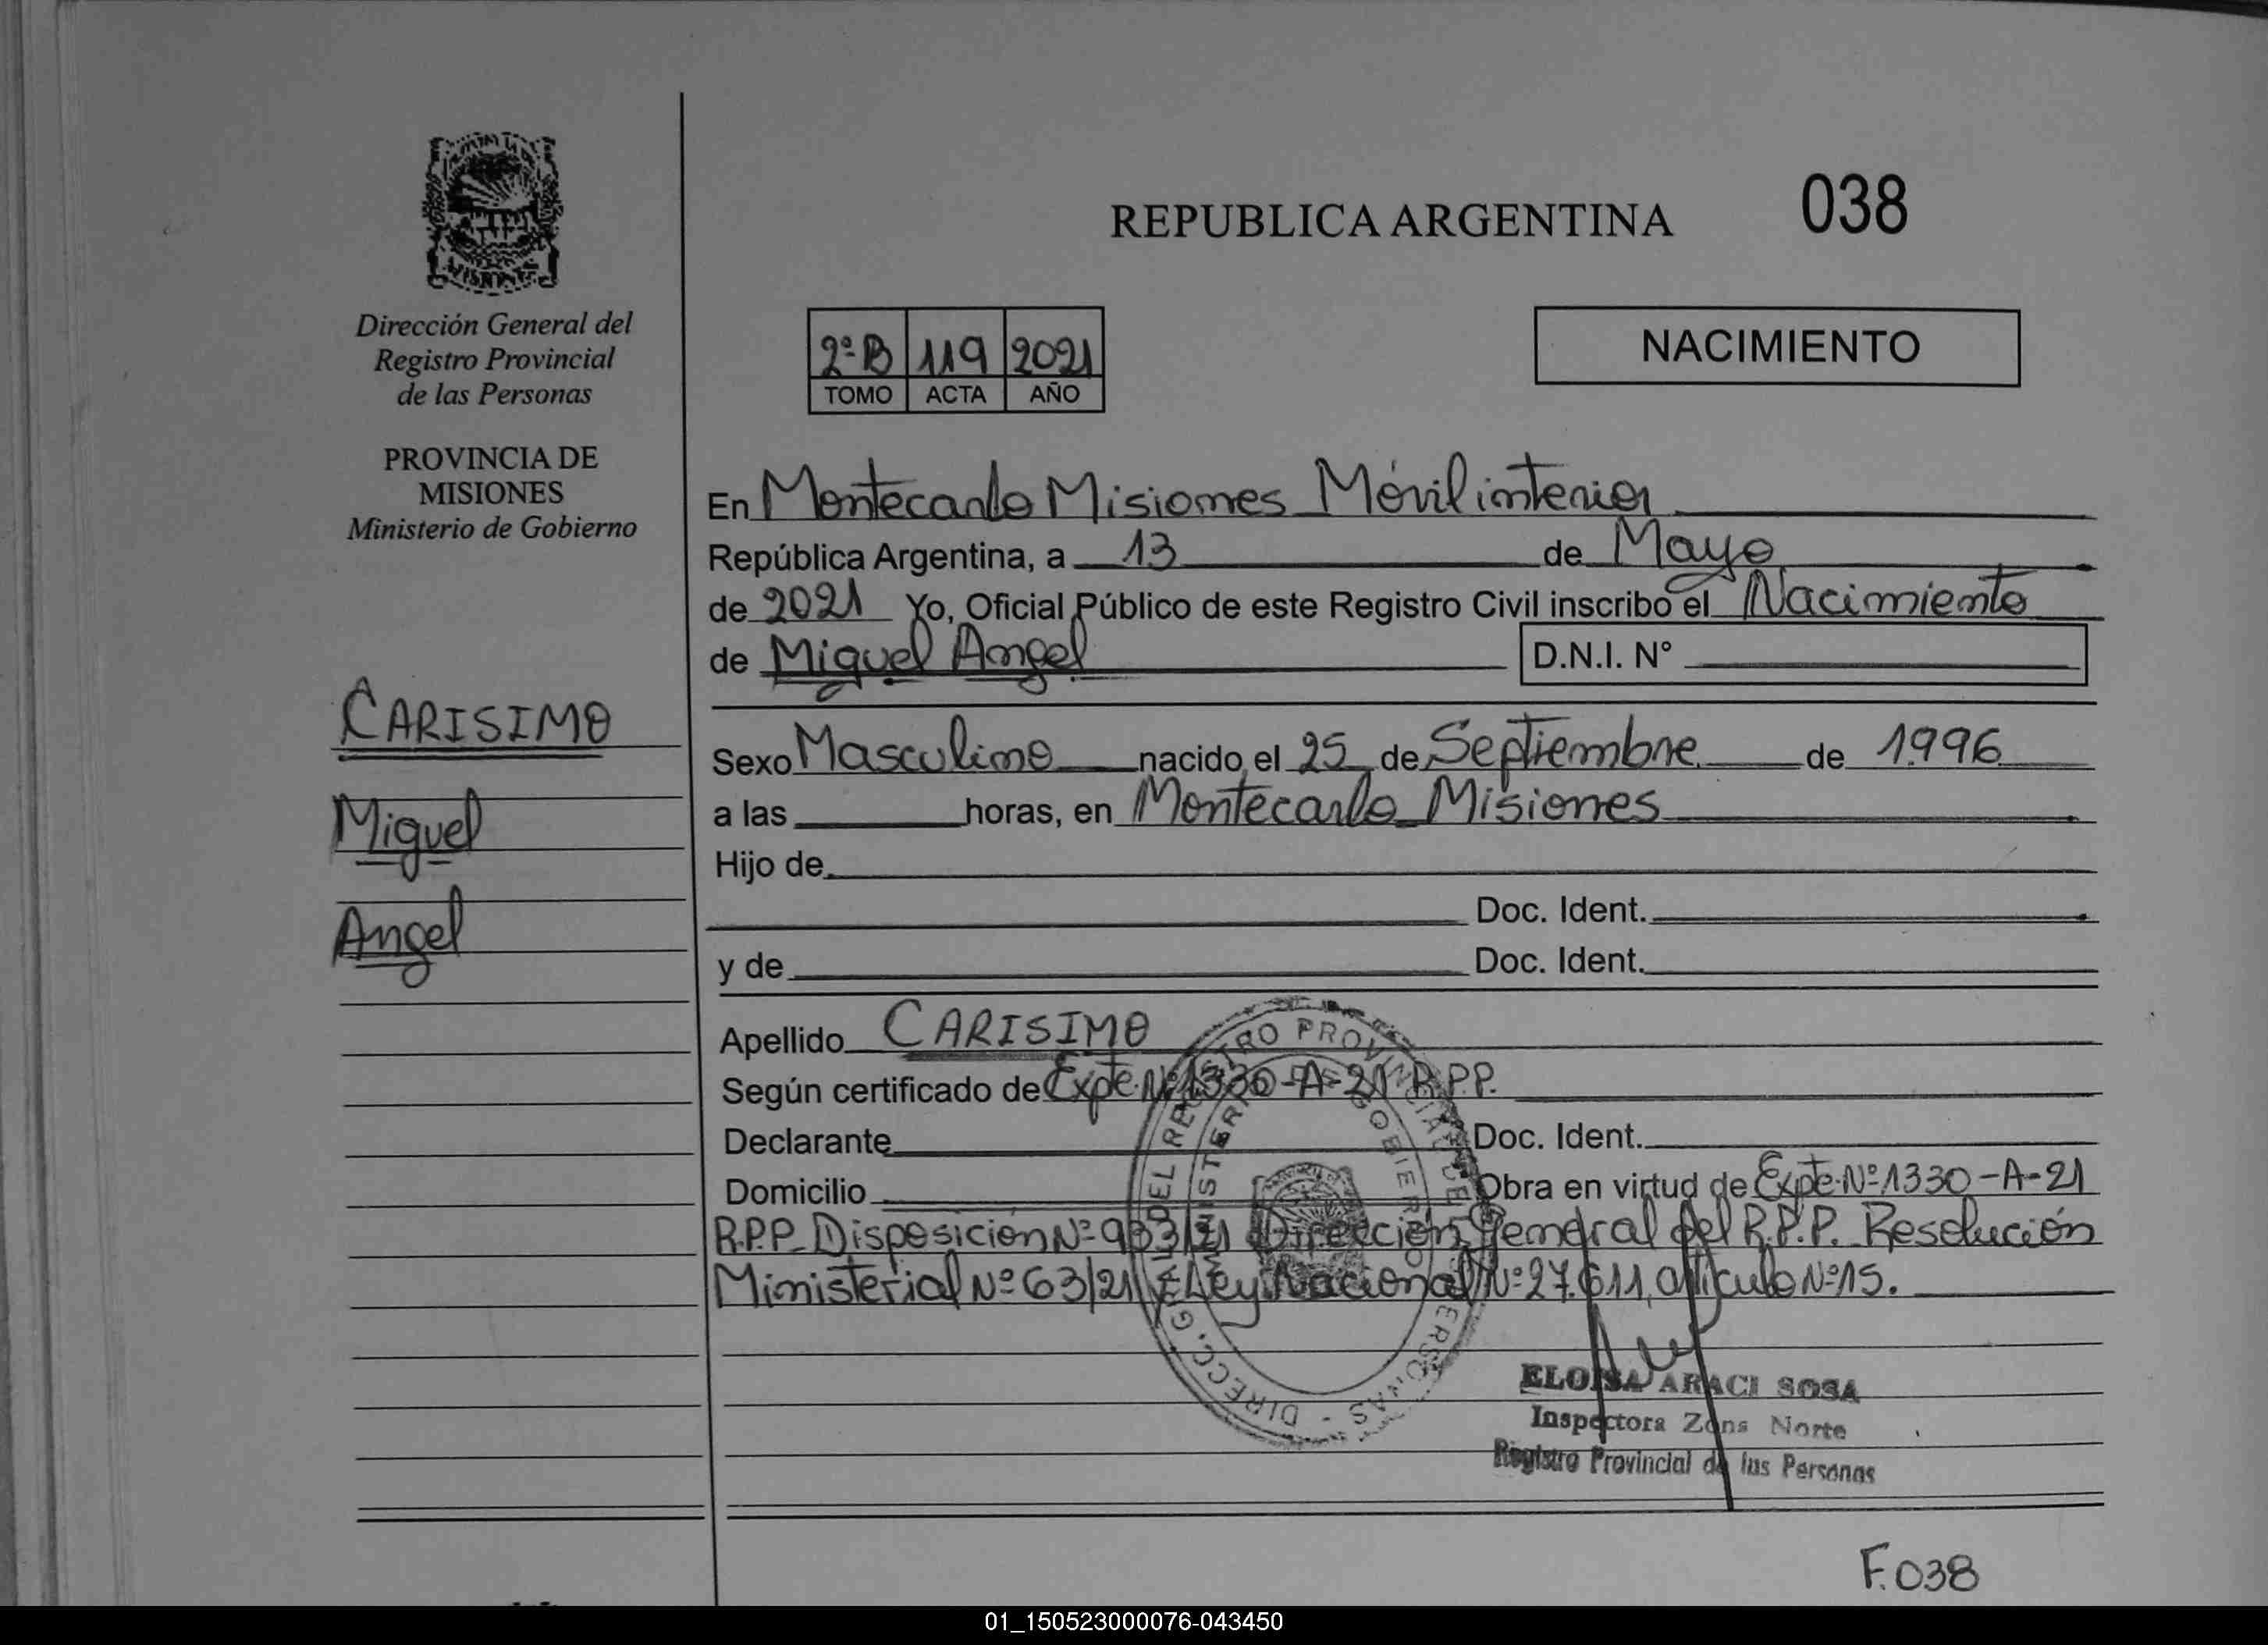 Dirección General del
Registro Provincial
de las Personas
PROVINCIA DE
MISIONES
Ministerio de Gobierno
CARISIMO
Miguel
Angel
REPUBLICA ARGENTINA 038
2º B 119 2021
TOMO ACTA AÑO
NACIMIENTO
En Montecarlo Misiones Móvil interior
República Argentina, a 13 de Mayo
de 2021 Yo, Oficial Público de este Registro Civil inscribo el Nacimiento
de Miguel Angel D.N.I. N°
Sexo Masculino nacido el 25 de Septiembre de 1996
a las horas, en Montecarlo Misiones
Hijo de
Doc. Ident.
y de Doc. Ident.
Apellido CARISIMO
Según certificado de Expte. Nº 1330-A-21 R.P.P.
Declarante Doc. Ident.
Domicilio Obra en virtud de Expte. Nº 1330-A-21
R.P.P. Disposición Nº 933/21 Dirección General del R.P.P. Resolución
Ministerial Nº 63/21 Ley Nacional Nº 27.611, artículo Nº 15.
DIRECC. G. DEL REGISTRO PROVINCIAL DE PERSONAS
MINISTERIO GOBIERNO
ELOISA ARACI SOSA
Inspectora Zona Norte
Registro Provincial de las Personas
F. 038
01_150523000076-043450